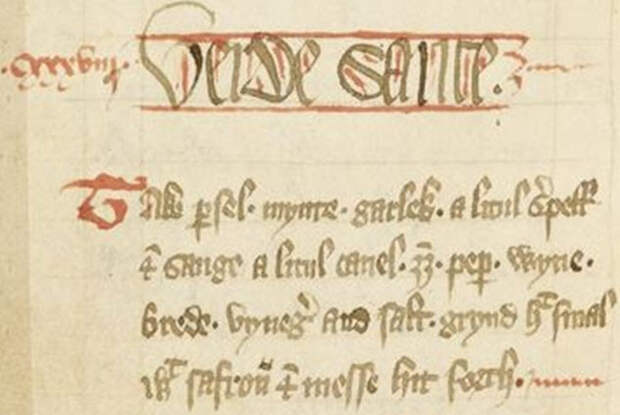 .cxxxviij. Verde Sause.
Tak p̱sel. mynte. garlek. a litul s̓pell
⁊ sauge a litul canel. gȝ. pep̱. wyne.
brede. vyneg̓ and salt. grynd hᵗ smal
wᵗ safrou̅ ⁊ messe hit forth.